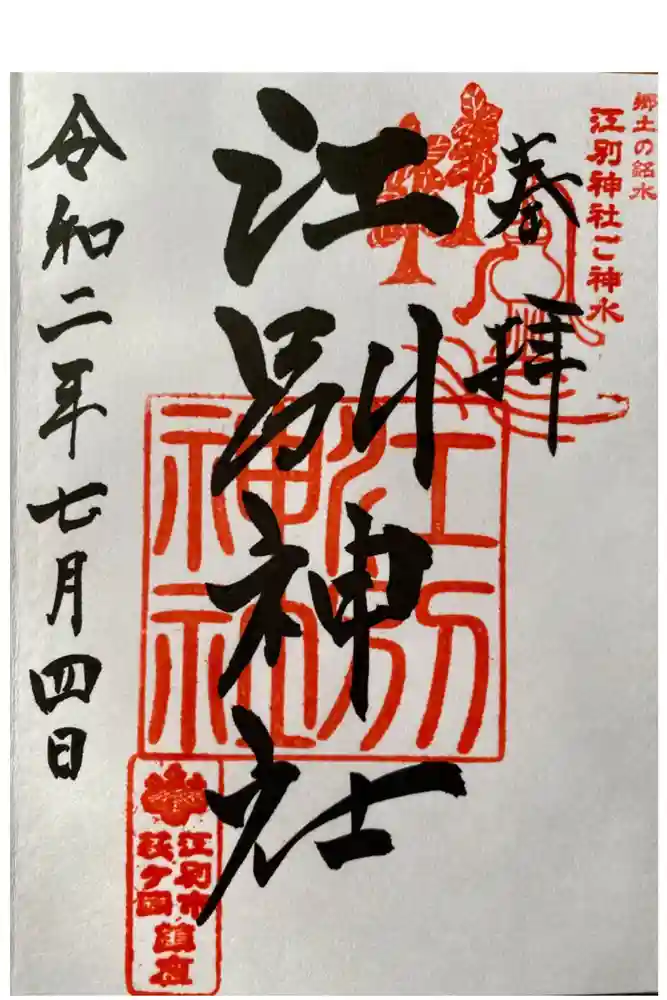 郷土の銘水
江別神社ご神水
奉拝
江別神社
江別神社
令和二年七月四日
江別市
萩ケ岡
鎮座